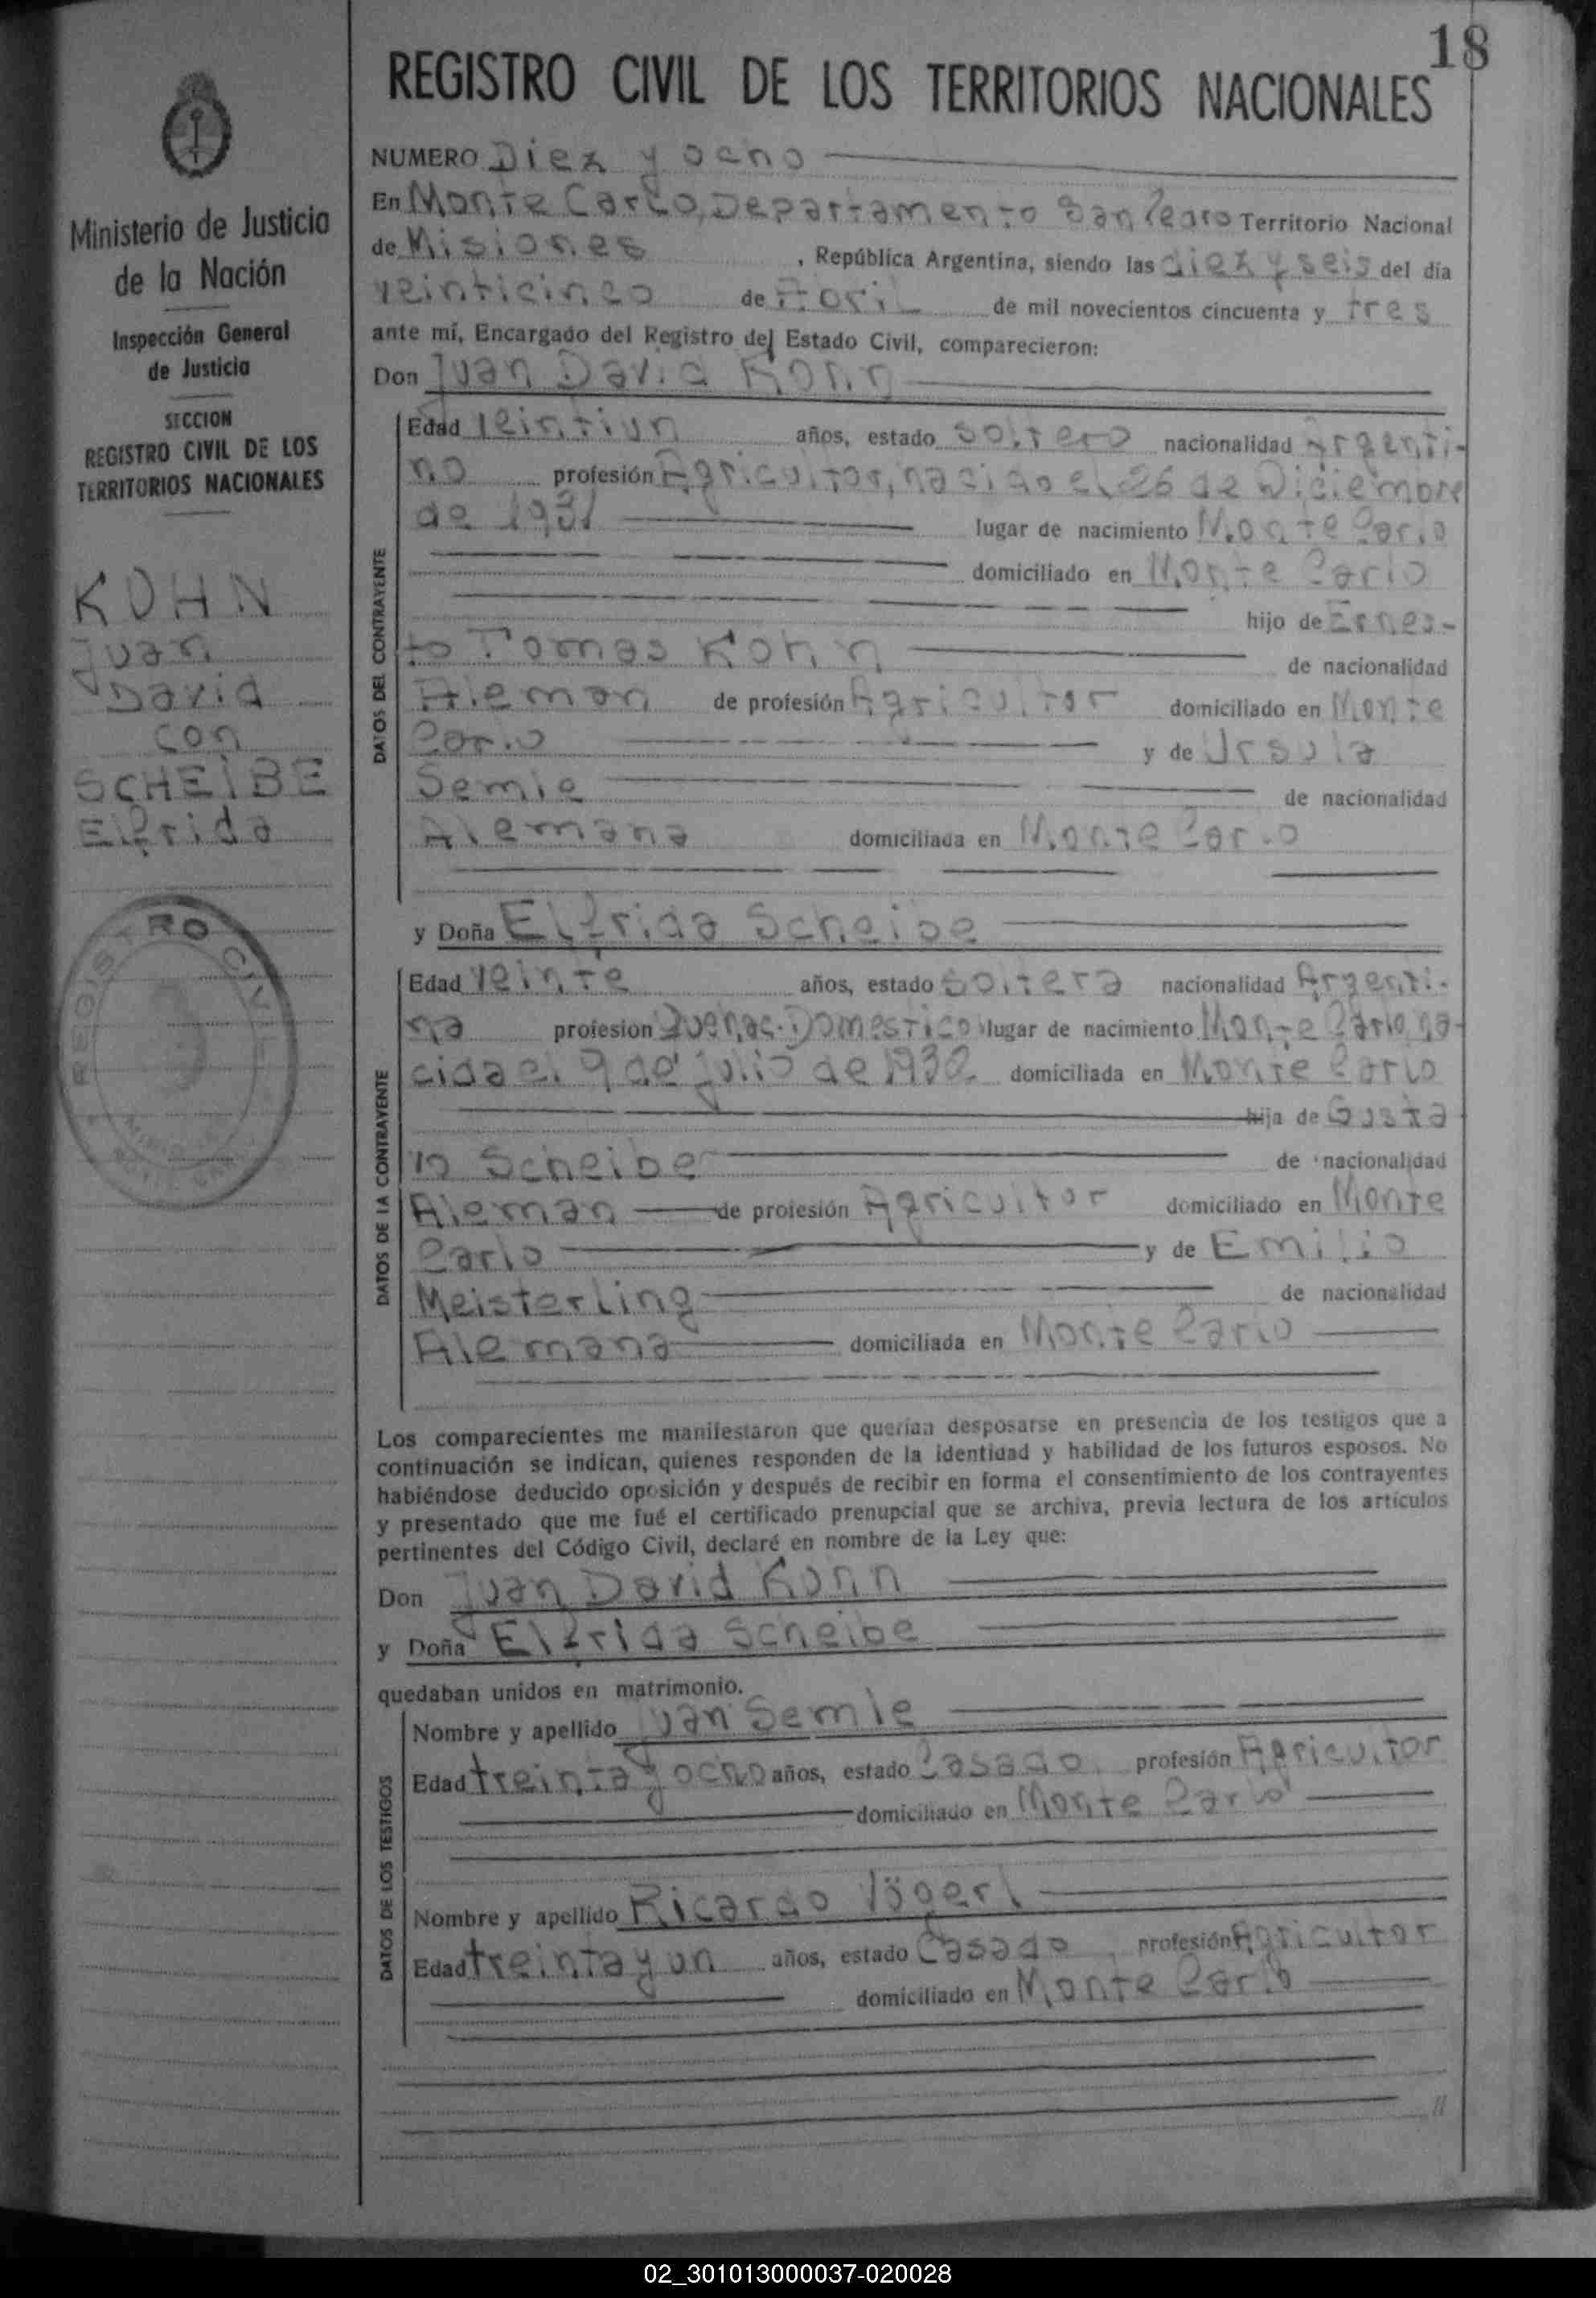 18
REGISTRO CIVIL DE LOS TERRITORIOS NACIONALES
Ministerio de Justicia
de la Nación
Inspección General
de Justicia
SECCION
REGISTRO CIVIL DE LOS
TERRITORIOS NACIONALES
KOHN
Juan
David
con
SCHEIBE
Elfrida
REGISTRO CIVIL
NUMERO Diez y ocho
En Monte Carlo, Departamento San Pedro Territorio Nacional
de Misiones , República Argentina, siendo las diez y seis del día
veinticinco de Abril de mil novecientos cincuenta y tres
ante mí, Encargado del Registro del Estado Civil, comparecieron:
Don Juan David Kohn
DATOS DEL CONTRAYENTE
Edad veintiun años, estado soltero nacionalidad Argenti-
no profesión Agricultor, nacido el 26 de Diciembre
de 1931 lugar de nacimiento Monte Carlo
domiciliado en Monte Carlo
hijo de Ernes-
to Tomas Kohn de nacionalidad
Aleman de profesión Agricultor domiciliado en Monte
Carlo y de Ursula
Semle de nacionalidad
Alemana domiciliada en Monte Carlo
y Doña Elfrida Scheibe
DATOS DE LA CONTRAYENTE
Edad veinte años, estado soltera nacionalidad Argenti-
na profesion Quehac. Domestico lugar de nacimiento Monte Carlo na-
cida el 9 de julio de 1932 domiciliada en Monte Carlo
hija de Gusta
vo Scheibe de nacionalidad
Aleman de profesión Agricultor domiciliado en Monte
Carlo y de Emilio
Meisterling de nacionalidad
Alemana domiciliada en Monte Carlo
Los comparecientes me manifestaron que querían desposarse en presencia de los testigos que a
continuación se indican, quienes responden de la identidad y habilidad de los futuros esposos. No
habiéndose deducido oposición y después de recibir en forma el consentimiento de los contrayentes
y presentado que me fué el certificado prenupcial que se archiva, previa lectura de los artículos
pertinentes del Código Civil, declaré en nombre de la Ley que:
Don Juan David Kohn
y Doña Elfrida Scheibe
quedaban unidos en matrimonio.
DATOS DE LOS TESTIGOS
Nombre y apellido Juan Semle
Edad treinta y ocho años, estado Casado, profesión Agricultor
domiciliado en Monte Carlo
Nombre y apellido Ricardo Vögerl
Edad treinta y un años, estado Casado, profesión Agricultor
domiciliado en Monte Carlo
02_301013000037-020028